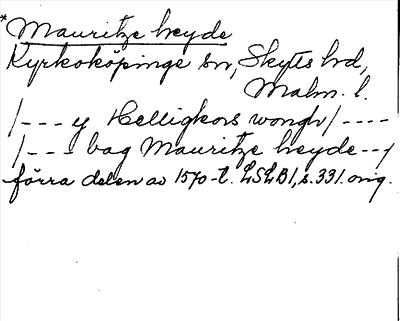 *Mauritze heyde
Kyrkoköpinge sn, Skytts hd,
Malm. l.
/--- y Helligkors wongh/----
/--- bag Mauritze heyde---/
förra delen av 1570-t. LSLB1, s. 331. orig.